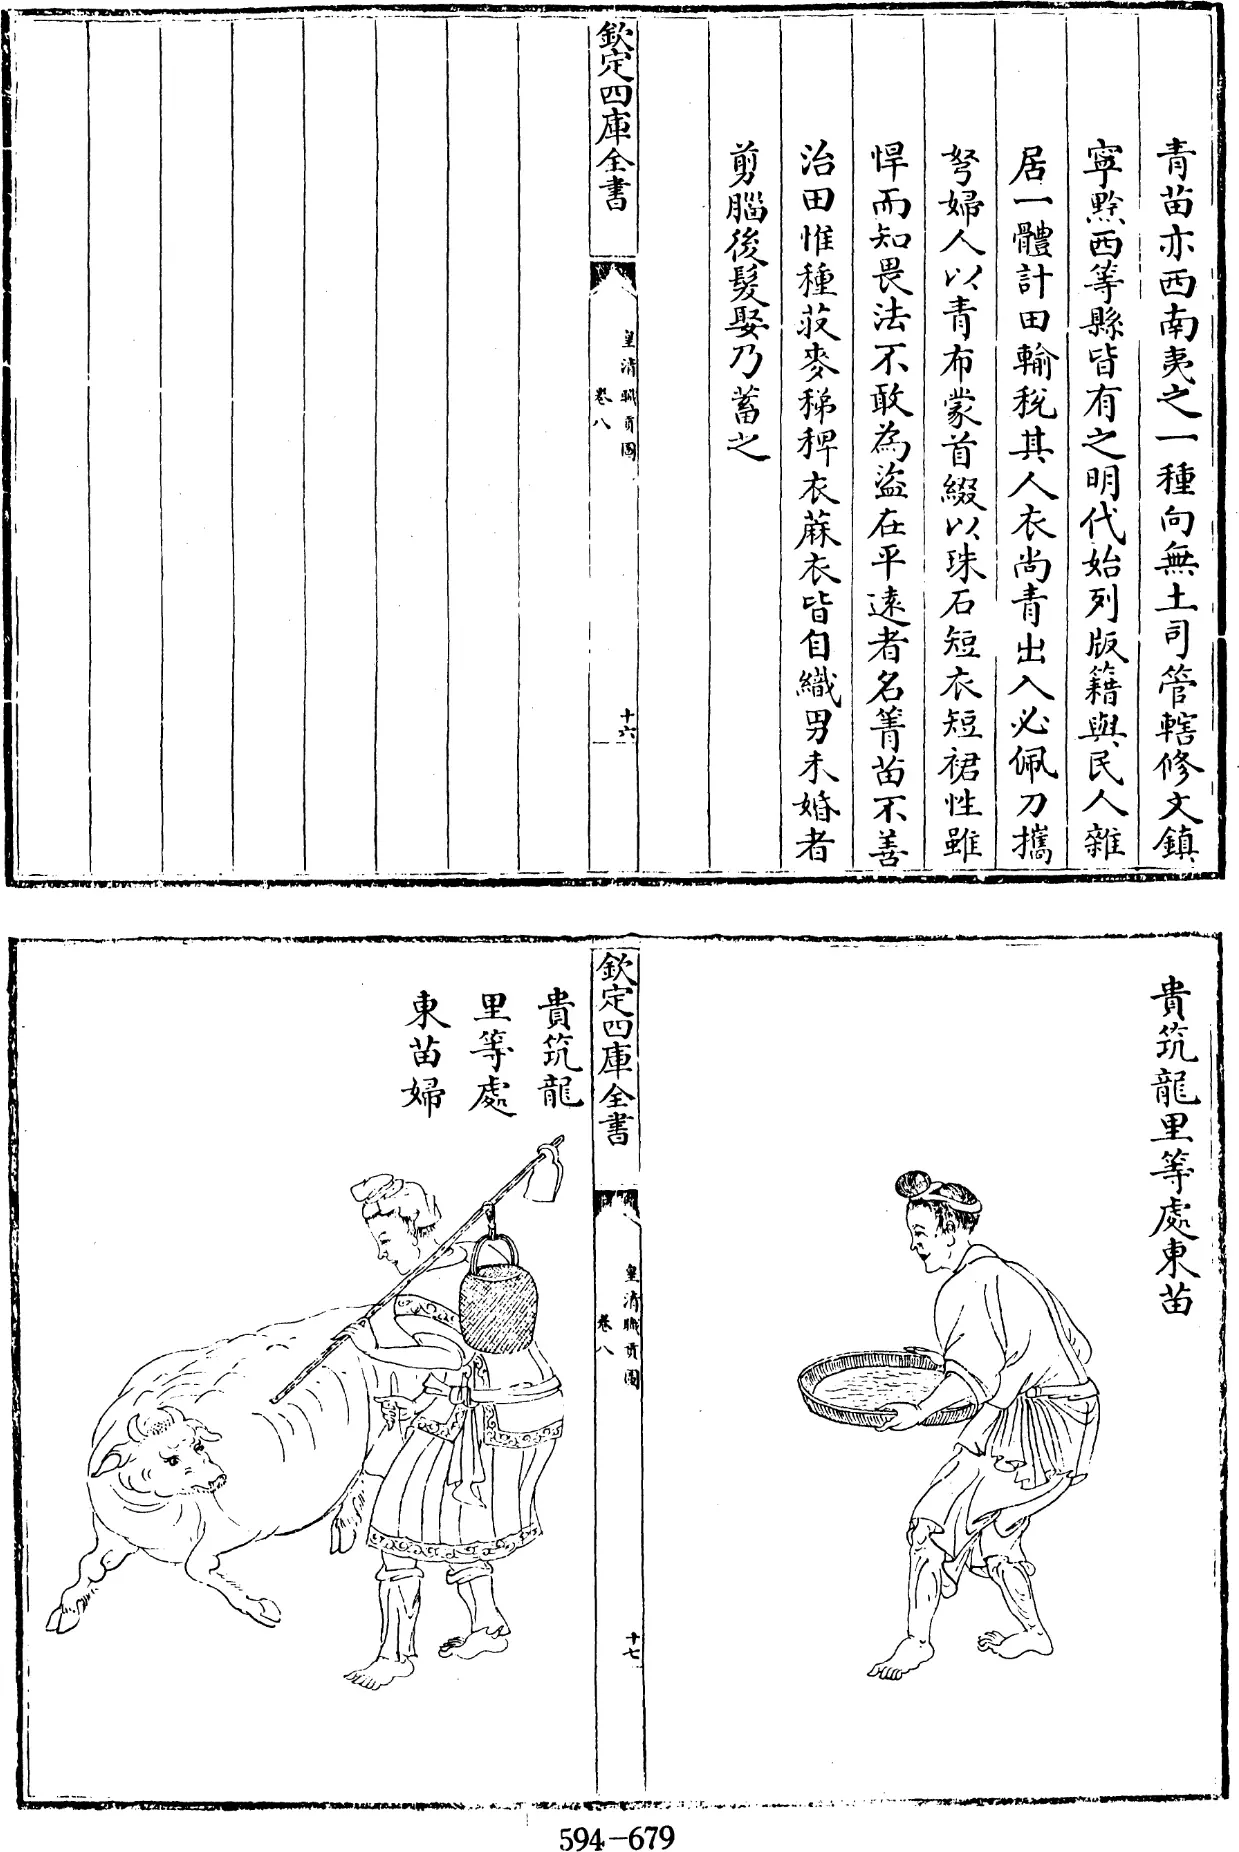 青苗亦西南夷之一種向無土司管轄修文鎮
寧黔西等縣皆有之明代始列版籍與民人雜
居一體計田輸稅其人衣尚青出入必佩刀攜
弩婦人以青布蒙首綴以珠石短衣短裙性雖
悍而知畏法不敢為盜在平遠者名箐苗不善
治田惟種荍麥稊稗衣蔴衣皆自織男未婚者
剪腦後髮娶乃蓄之
欽定四庫全書
皇清職貢圖
卷八
十六
貴筑龍里等處東苗
欽定四庫全書
皇清職貢圖
卷八
十七
貴筑龍
里等處
東苗婦
594-679